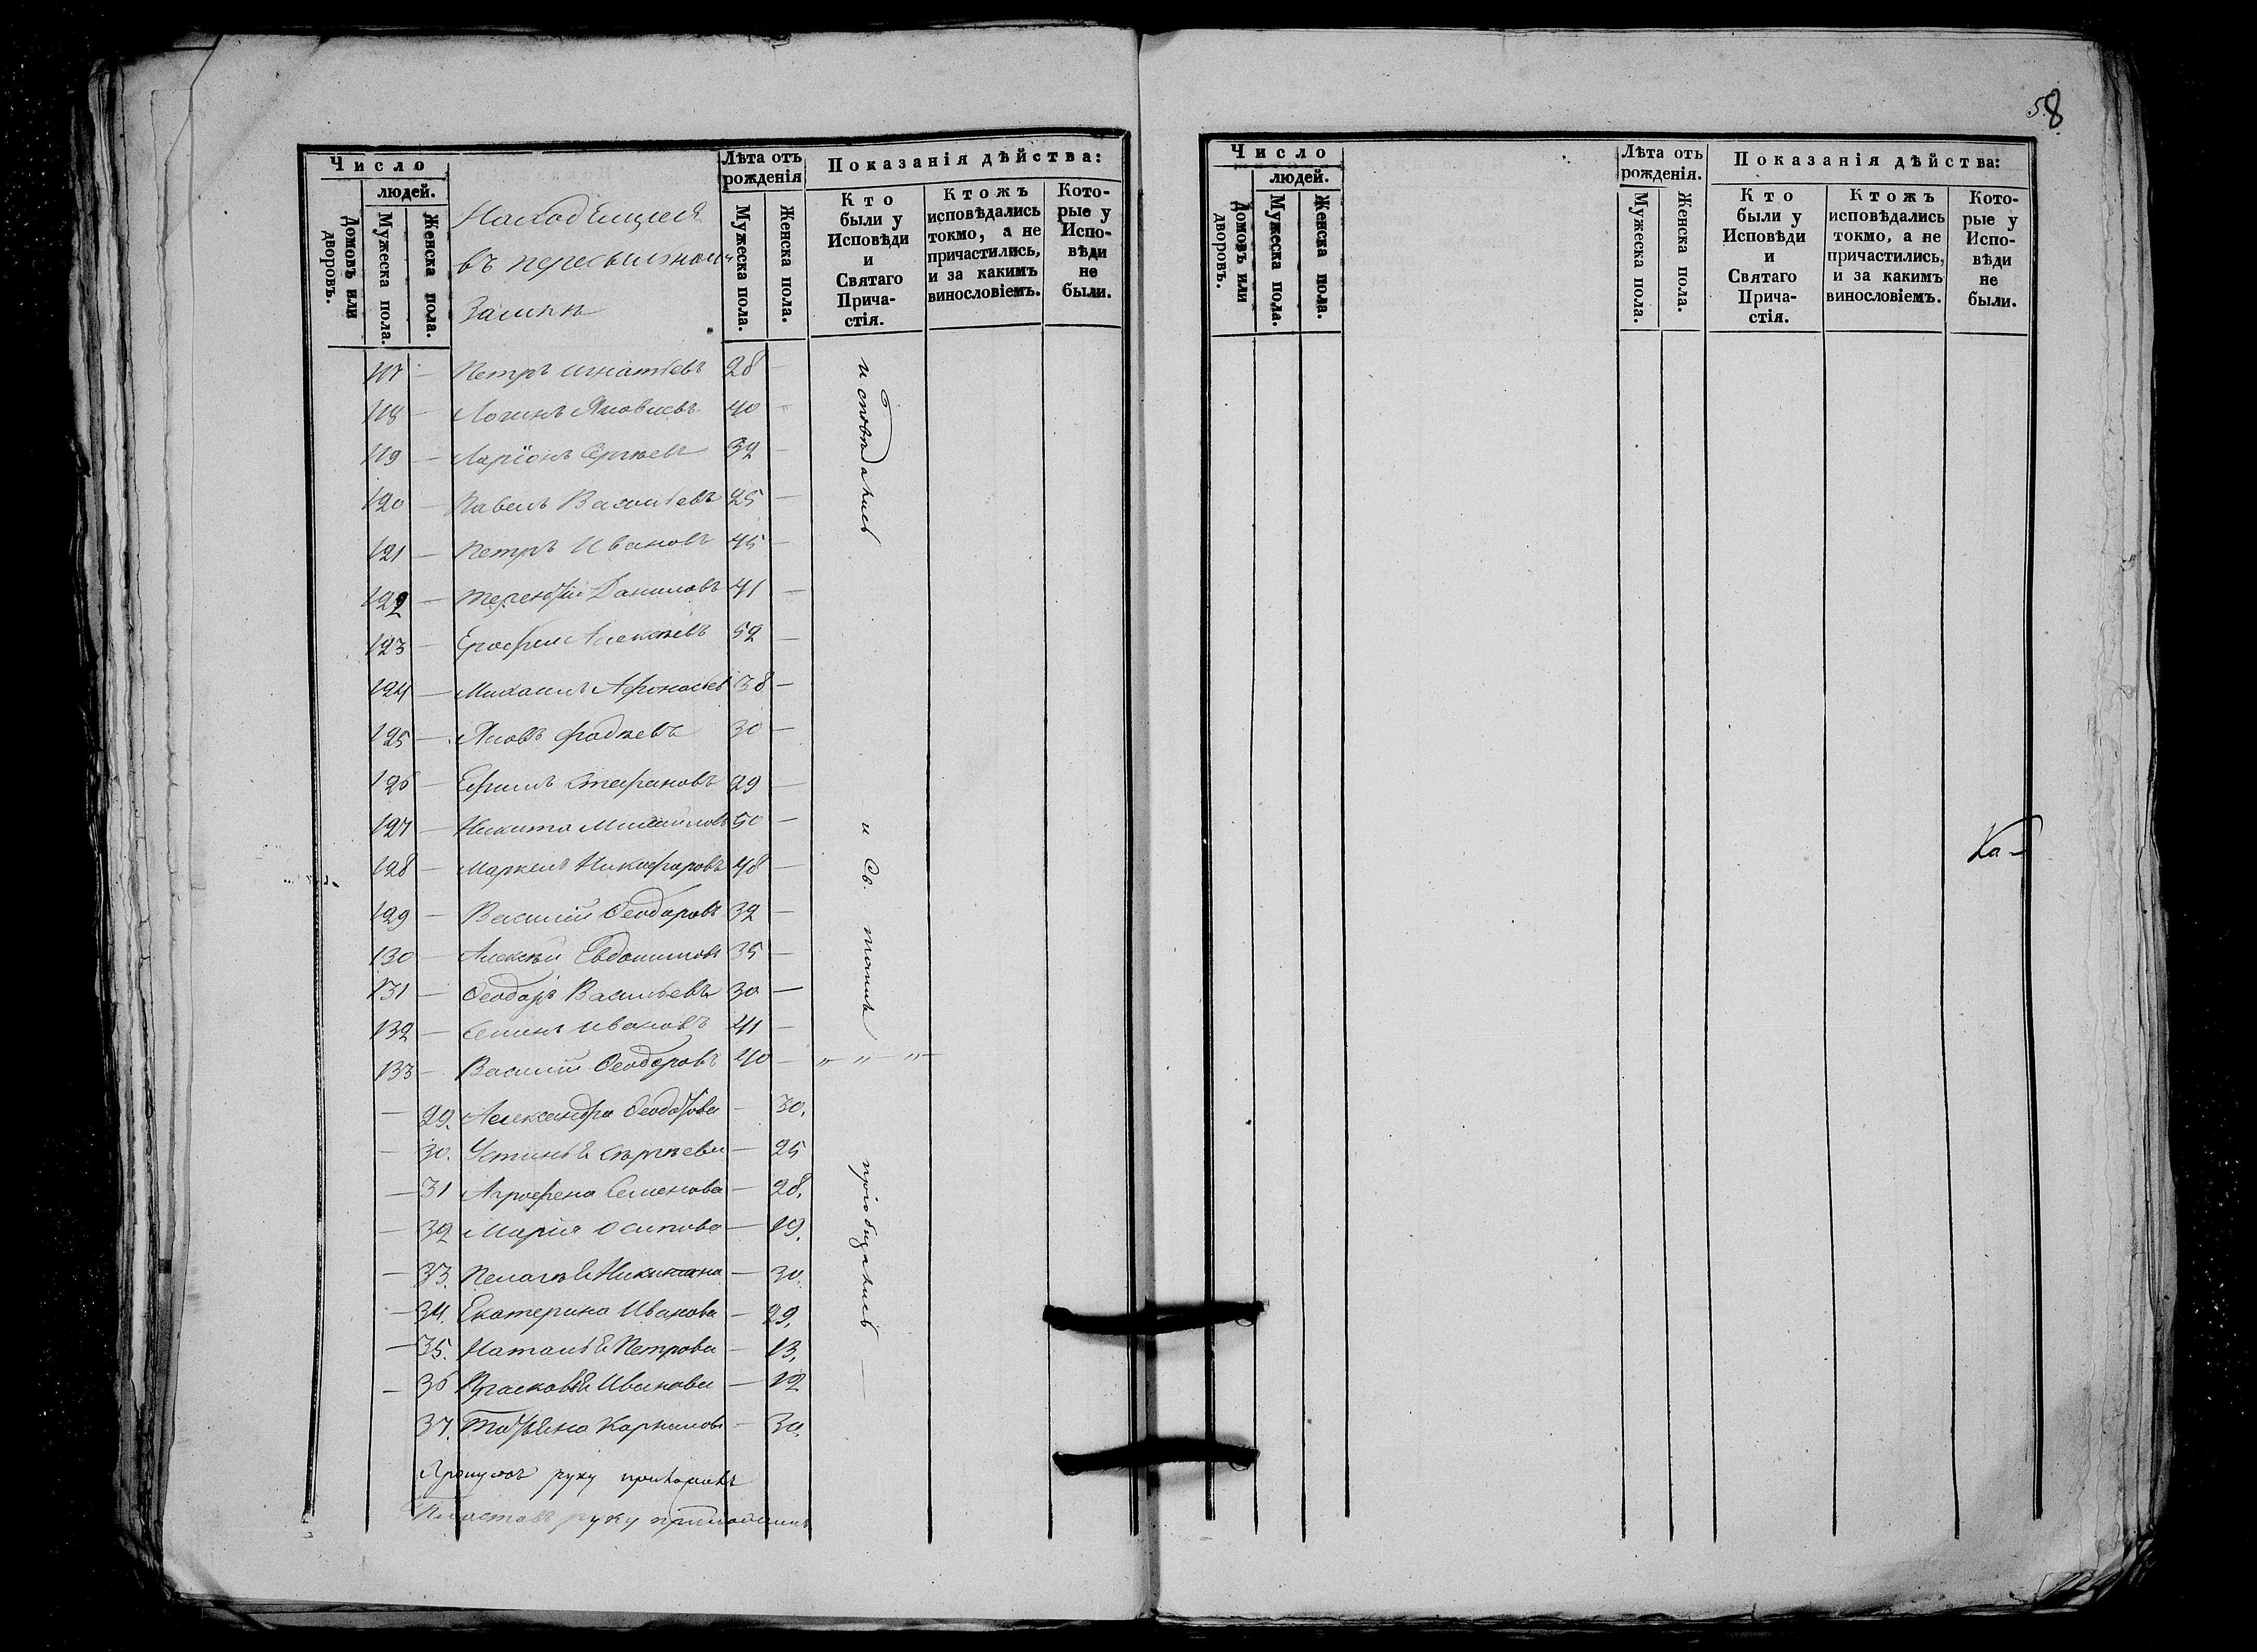 Число
людей.
Домовъ или дворовъ.
Мужеска пола.
Женска пола.
Находящіеся
въ пересыльномъ
Замкѣ
Лѣта отъ рожденія
Мужеска пола.
Женска пола.
Показанія дѣйства:
Кто были у Исповѣди и Святаго Прича-стія.
Ктожъ исповѣдались токмо, а не причастились, и за какимъ винословіемъ.
Кото-рые у Испо-вѣди не были.
117 — Петръ Игнатьевъ 28 —
118 — Логинъ Яковлевъ 40 —
119 — Ларіонъ Сергѣевъ 32 —
120 — Павелъ Васильевъ 25 —
121 — Петръ Ивановъ 45 —
122 — Терентій Даниловъ 41 —
123 — Ерофей Алексѣевъ 52 —
124 — Михаилъ Афонасьев 38 —
125 — Яковъ Фадѣевъ 30 —
126 — Ефимъ Стефановъ 29 —
127 — Никита Михайловъ 50 —
128 — Маркелъ Никифаровъ 48 —
129 — Василій Ѳеодоровъ 32 —
130 — Алексѣй Евдокимовъ 35 —
131 — Ѳеодоръ Васильевъ 30 —
132 — Семенъ Ивановъ 41 —
133 — Василій Ѳеодоровъ 40 — „ „ — „ —
— 29. Александра Ѳеодорова — 30.
— 30. Устинья Сергѣева — 25
— 31 Агрофена Семенова — 28.
— 32 Марія Осипова — 19.
— 33. Пелагѣя Никитина — 30
— 34. Екатерина Иванова — 29.
— 35. Наталья Петрова — 13.
— 36 Прасковья Иванова — 12
37. Татьяна Карпилова — 30.
исповѣдались
и Св. таинъ
пріобщались —
руку
руку
58
Число
людей.
Домовъ или дворовъ.
Мужеска пола.
Женска пола.
Лѣта отъ рожденія.
Мужеска пола.
Женска пола.
Показанія дѣйства:
Кто были у Исповѣди и Святаго Прича-стія.
Ктожъ исповѣдались токмо, а не причастились, и за какимъ винословіемъ.
Кото-рые у Испо-вѣди не были.
Ка-